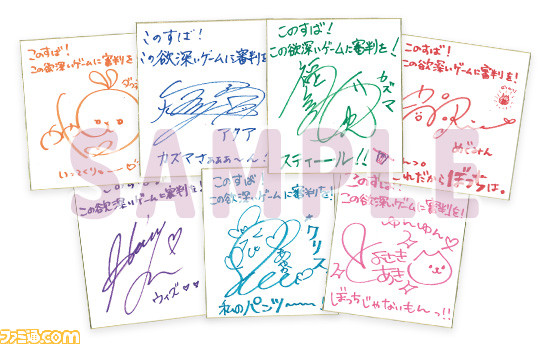 このすば!
この欲深いゲームに審判を
ダクネス
いってくりゅーー
このすば!
この欲深いゲームに審判を!
アクア
カズマさぁぁあ〜ん!
このすば!
この欲深いゲームに審判を!
カズマ
スティール!!
このすば!
この欲深いゲームに審判を!
めぐみん
これだからぼっちは。
この欲深いゲームに審判を!
ウィズ♡♡
このすば
この欲深いゲームに審判を!
クリス
私のパンツ〜〜!
このすば!
この欲深いゲームに審判を!
ゆんゆん♡
とよさき
あき
ぼっちじゃないもんっ!!
SAMPLE
ファミ通.com